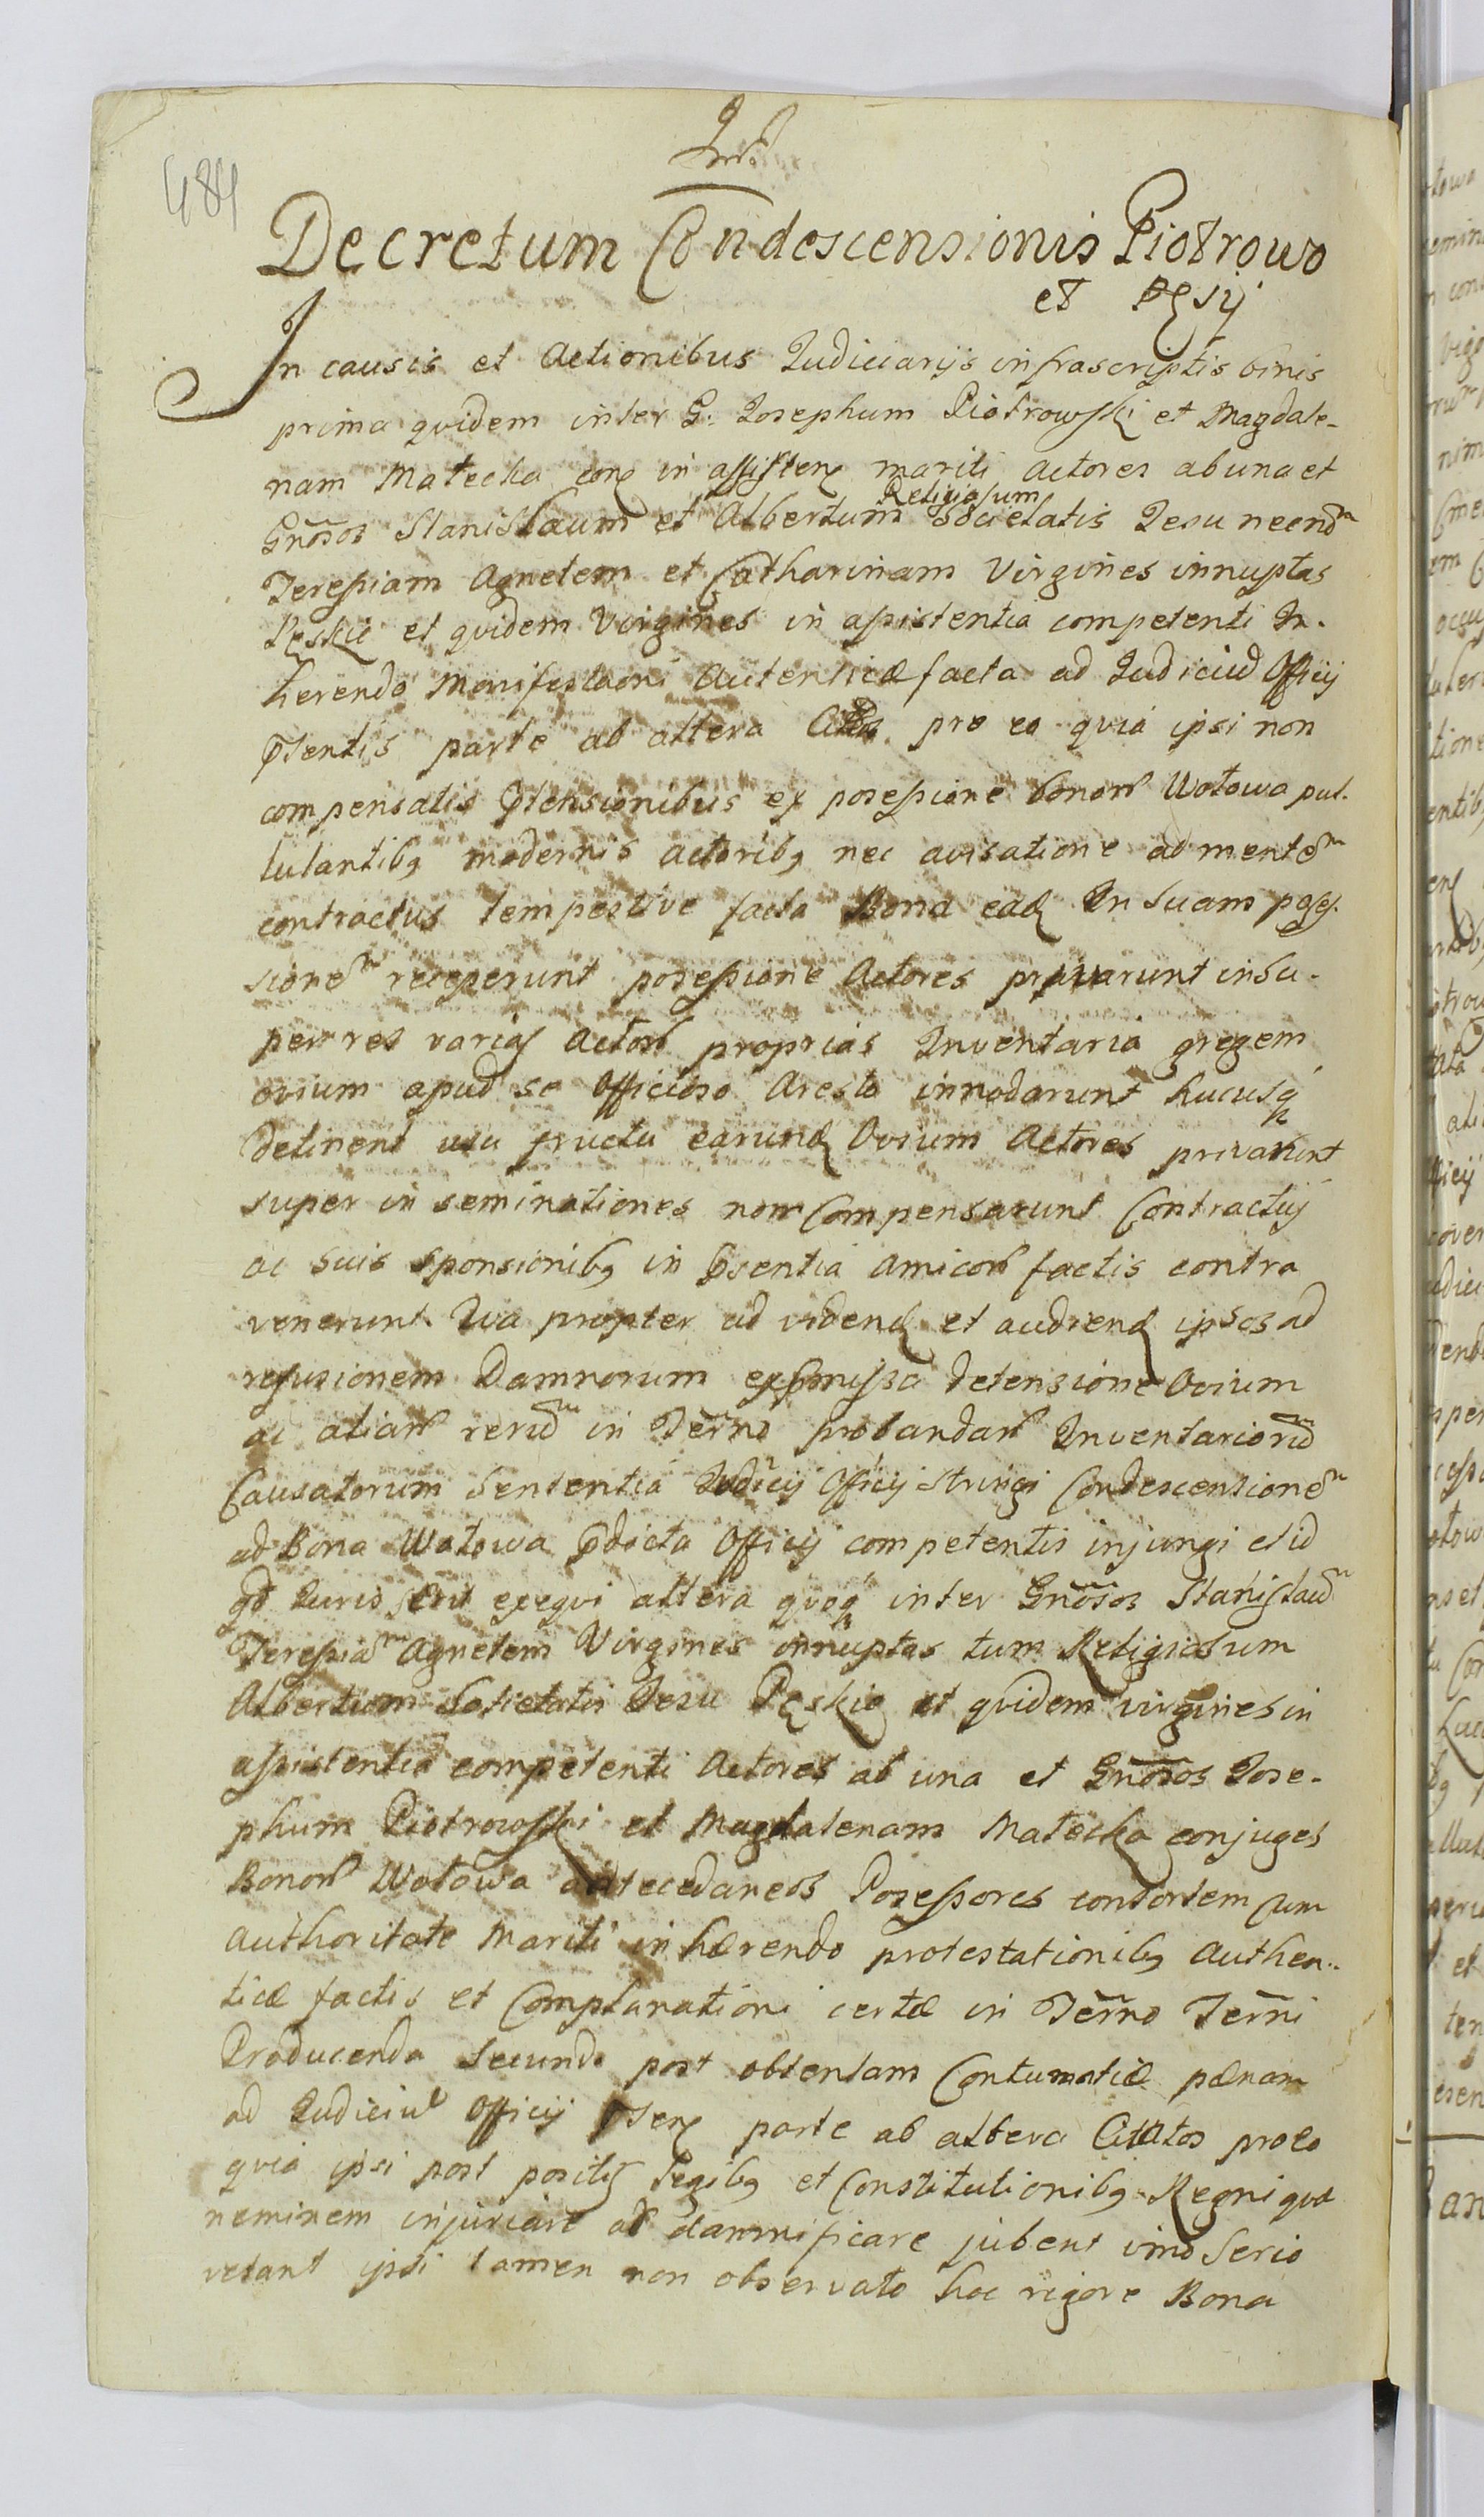 484
Decretum Condescensionis Piotrowo
et Pęsij
In causis et Actionibus Judiciarijs infrascriptis binis
prima qvidem inter G: Josephum Piotrowski et Magdale-
nam Małecka conj in assisten mariti actores ab una et
Religiosum
Gñosos Stanislaum et Albertum Societatis Jesu necnõ
Teressiam Agnetem et Catharinam Virgines innuptas
Pęskie et qvidem Virgines in assistentia competenti In-
herendo Manifestaõni Autenticæ facta ad Judiciũ Officij
pñsentis parte ab altera Cittos pro eo qvia ipsi non
compensatis ptensionibus ex possessione bonorũ Wołowa pul-
lulantibꝫ modernis actoribꝫ nec avisatione ad mentẽ
contractus tempestive facta Bona eadꝫ In suam posses-
sionẽ receperunt possessione Actores privarunt insu-
per res varias Actorũ proprias Inventaria gregem
ovium apud se Officioso Aresto innodarunt hucusq
detinent usu fructu earundꝫ Ovium Actores privarunt
super in seminationes non Compensarunt Contractuj
ac suis sponsionibꝫ in psentia amicorũ factis contra
venerunt Qva propter ad videndꝫ et audiendꝫ ipsos ad
refusionem Damnorum ex pmissa detensione Ovium
ac aliarũ rerũ in Termõ probandarũ Inventariorũ
Causatorum Sententia Judicij Officij stringi Condescensionẽ
ad Bona Wołowa pdicta Officij competentis injungi et id
qd Juris erit exeqvi altera qvoq inter Gñosos Stanislaũ
Teressiã Agnetem Virgines innuptas tum Religiosum
Albertum Societatis Jesu Pęskie et qvidem virgines in
assistentia competenti Actores ab una et Gñosos Jose-
phum Piotrowski et Magdalenam Małecka conjuges
Bonorũ Wołowa antecedaneos Possessores consortem cum
authoritate Mariti inhærendo protestationibꝫ Authen-
ticæ factis et Complanationi certæ in Terño Terñi
Producenda secundo post obtentam Contumatiæ pænam
ad Judiciũ Officij psenꝫ parte ab altera Citatos pro eo
qvia ipsi post positis Legibꝫ et Constitutionibꝫ Regni qvæ
neminem injuriare ac damnificare jubent imo serio
vetant ipsi tamen non observato hoc rigore Bona